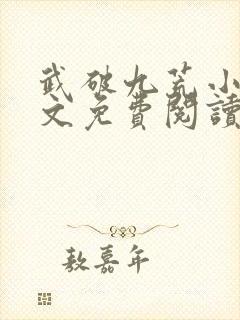 武破九荒小
文免費閱讀
敖嘉年